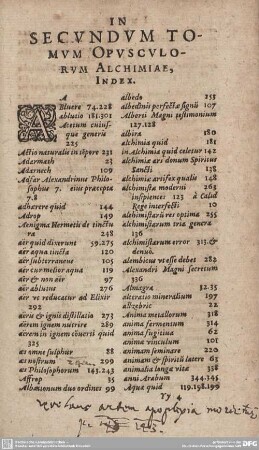 IN
SECVNDVM TO-
MVM OPVSCVLO-
RVM ALCHIMIAE,
INDEX.
A
ABluere 74.228
ablutio 181.301
Acetum cuius-
que generis
225
Actio naturalis in tēpore 231
Adarmath 23
Adarnech 109
Adfar Alexandrinus Philo-
sophus 7. eius præcepta
7.8
adhærere quid 144
Adrop 149
Aenigma Hermetis de tinctu
ra 248
aër quid dixerunt 59.275
aër aqua tincta 120
aër subterreneus 105
aër cur melior aqua 119
aër & non aër 101
aër ablutus 276
aër ve reducatur ad Elixir
292
aëris & ignis distillatio 273
aërem ignem nutrire 289
aërem in ignem cōuerti quid
sit 325
æs omne sulphur 88
æs nostrum 299
æs Philosophorum 145.243
Affrop 35
Albationum duo ordines 99
albedo 153
albedinis perfectæ signū 107
Alberti Magni testimonium
127.128
albira 180
alchimia quid 181
in Alchimia quid celetur 142
alchimiæ ars donum Spiritus
Sancti 138
alchimiæ artifex qualis 148
alchimistæ moderni 263
insipientes 123 à Calid
Rege interfecti 10
alchimistarū res optima 255
alchimistarum tria genera
136
alchimistarum error 313.&
denuò.
alembicus vt esse debet 282
Alexandri Magni secretum
336
Almagra 32.35
alteratio mineralium 197
alkebric 22
Anima metallorum 318
anima fermentum 314
anima fugitiua 62
anima vinculum 101
animam seminare 220
animam & spiritū lateri 61
animalia longa vita 338
anni Arabum 344.345
Aqua quid 119.158.199